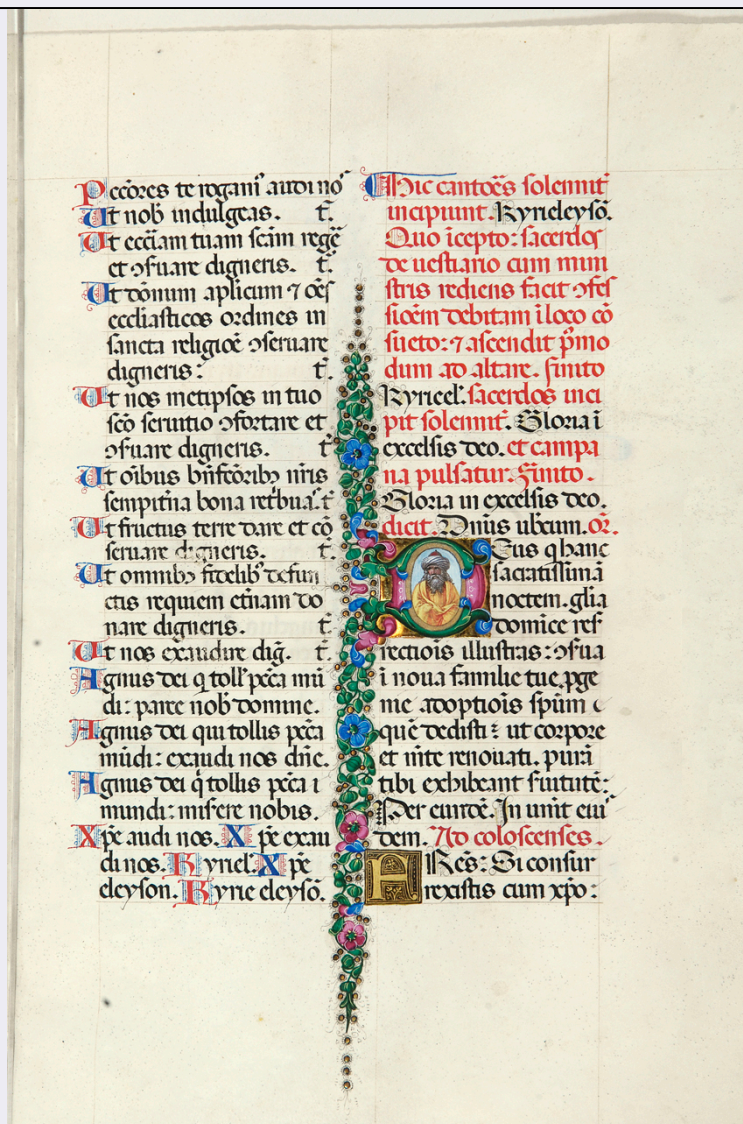 Pccōres te rogam᷒ audi no᷒
Ut nob indulgeas. t͛.
Ut eccīam tuam scām regē
et ɔſuare digneris. t͛.
Ut dōnum aplicum ⁊ oēs
eccliasticos ordines in
sancta religiōe ɔseruare
digneris: t͛.
Ut nos metipsos in tuo
sc̄o seruitio ɔfortare et
ɔſuare digneris. t͛
Ut oībus bn̄fcōribꝫ nr̄is
sempit̄na bona retbuas. t͛
Ut fructus terre dare et cō
seruare digneris. t͛.
Ut omnibꝫ fidelibꝰ defun
ctis requiem et̄nam do
nare digneris. t͛
Ut nos exaudire dig̃. t͛.
Agnus dei q̇ toll᷒ pc̄ca mū
di: parce nob᷒ domine.
Agnus dei qui tollis pc̄ca
mūdi: exaudi nos dn̄e.
Agnus dei q̇ tollis pc̄ca
mundi: miſere nobis.
Xp̄e audi nos. Xp̄e exau
di nos. Kyriel᷒. Xp̄e
eleyson. Kyrie eleysō.
Hic cantōes solemnit͛
incipiunt. Kyrieleysō.
Quo īcepto: sacerdos
de uestiario cum mini
stris rediens facit ɔfes
siōem debitam ī loco cō
sueto: ⁊ ascendit p̄mo
dum ad altare. finito
Kyrieel᷒. sacerdos inci
pit solemnit͛. Gloria ī
excelsis deo. et campa
na pulsatur. Finito.
Gloria in excelsis deo.
dicit. Dn̄us uobcum. or͛.
Deus q hanc
sacratissimā
noctem. gl̄ia
domīce res
rectiōis illustras: ɔſua
ī noua familie tue ꝓge
nie adoptiōis spūm
quē dedisti: ut corpore
et mēte renouati. purā
tibi exhibeant ſuitutē:
Per eundē. In unit͛ eiuſ
dem. Ad colosenses.
FRēs: Si consur
rexistis cum xp̄o: